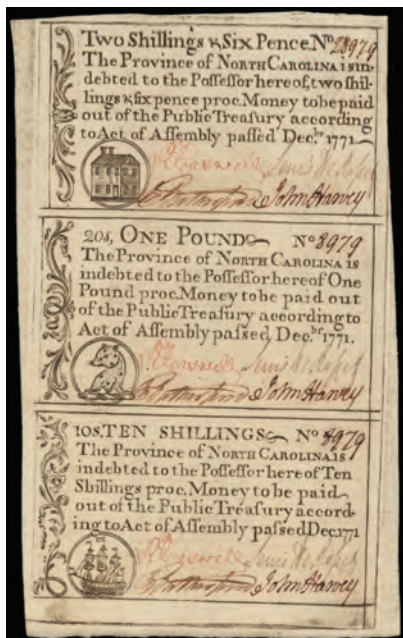 Two Shillings & Six Pence. No 28979
The Province of NORTH CAROLINA is in-
debted to the Possessor hereof, two shil-
lings & six pence proc. Money to be paid
out of the Public Treasury according
to Act of Assembly passed Decbr. 1771
R Caswell Lewis De Rosset
John Harvey
20s, ONE POUND No 8979
The Province of NORTH CAROLINA is
indebted to the Possessor hereof One
Pound proc. Money to be paid out
of the Public Treasury according to
Act of Assembly passed, Decbr. 1771.
R Caswell Lewis De Rosset
John Harvey
10s, TEN SHILLINGS No 8979
The Province of NORTH CAROLINA is
indebted to the Possessor here of Ten
Shillings proc. Money to be paid
out of the Public Treasury accord-
ing to Act of Assembly passed Dec. 1771
R Caswell Lewis De Rosset
John Harvey